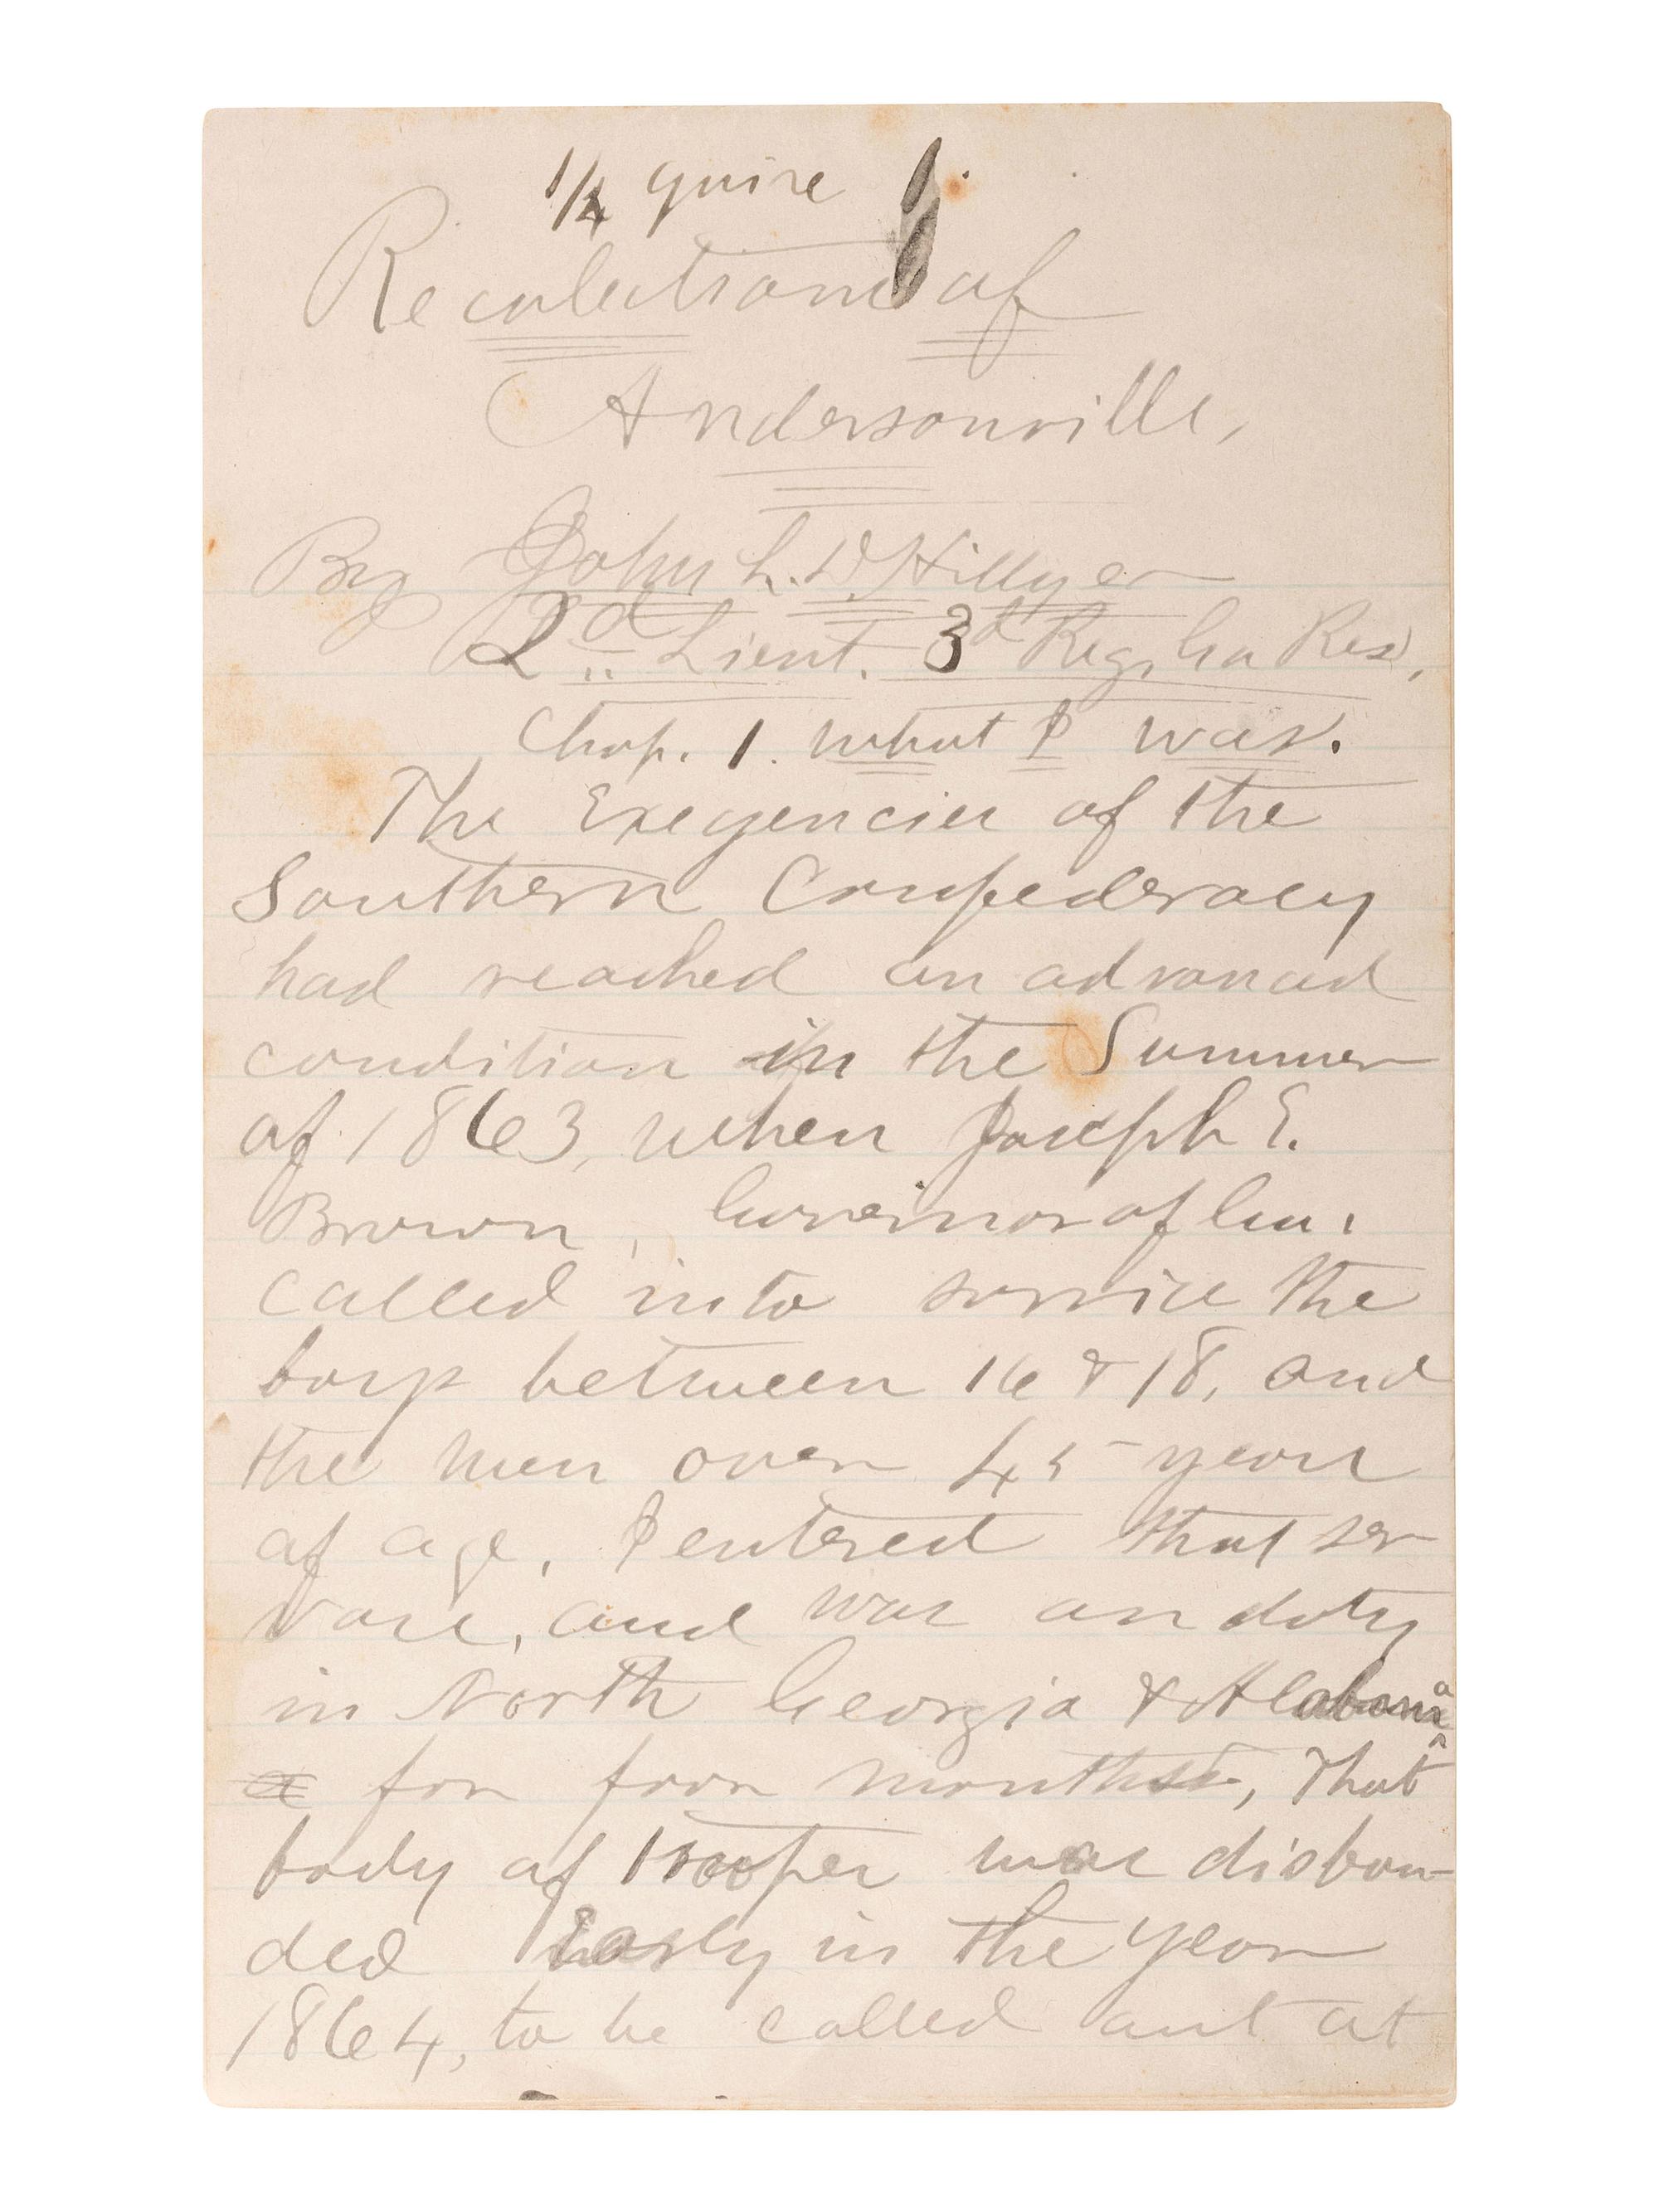 1/4 quire
Recolections of
Andersonville,
By John L. D. Hillyer
2d Lieut. 3d Reg, Ga Res,
Chap. 1. What I was.
The Exegencies of the
Southern Confederacy
had reached an advanced
condition in the Summer
of 1863, when Joseph E.
Brown, Governor of Ga.
called into service the
boys between 16 & 18, and
the men over 45 years
of age. I entered that ser
vice, and was on duty
in North Georgia & Alabama
for four months, That
body of troops was disban-
ded Early in the year
1864, to be called out at